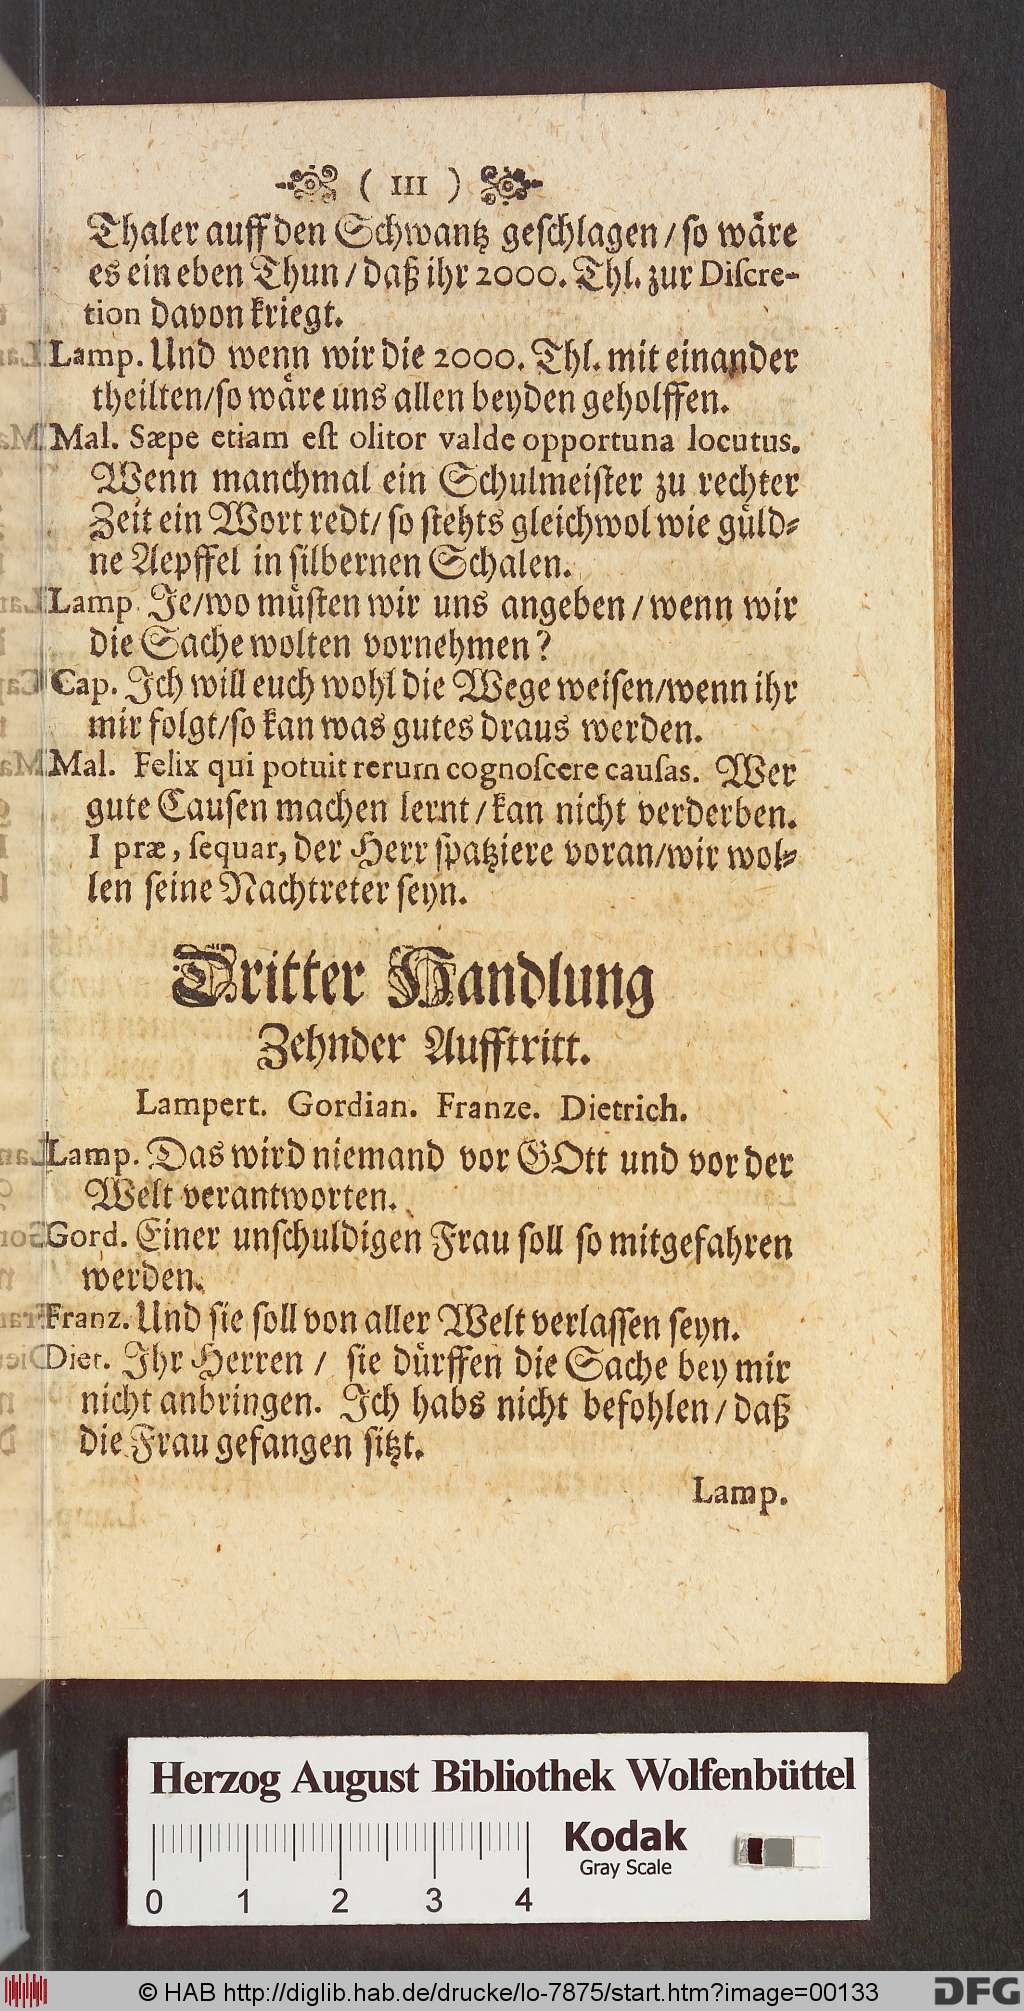 ( 111 )
Thaler auff den Schwantz geschlagen / so wäre
es ein eben Thun / daß ihr 2000. Thl. zur Discre-
tion davon kriegt.
Lamp. Und wenn wir die 2000. Thl. mit einander
theilten/so wäre uns allen beyden geholffen.
Mal. Sæpe etiam est olitor valde opportuna locutus.
Wenn manchmal ein Schulmeister zu rechter
Zeit ein Wort redt/ so stehts gleichwol wie güld-
ne Aepffel in silbernen Schalen.
Lamp. Je/wo müsten wir uns angeben / wenn wir
die Sache wolten vornehmen?
Cap. Ich will euch wohl die Wege weisen/wenn ihr
mir folgt/so kan was gutes draus werden.
Mal. Felix qui potuit rerum cognoscere causas. Wer
gute Causen machen lernt / kan nicht verderben.
I præ, sequar, der Herr spatziere voran/wir wol-
len seine Nachtreter seyn.
Dritter Handlung
Zehnder Aufftritt.
Lampert. Gordian. Franze. Dietrich.
Lamp. Das wird niemand vor GOtt und vor der
Welt verantworten.
Gord. Einer unschuldigen Frau soll so mitgefahren
werden.
Franz. Und sie soll von aller Welt verlassen seyn.
Diet. Ihr Herren / sie dürffen die Sache bey mir
nicht anbringen. Ich habs nicht befohlen / daß
die Frau gefangen sitzt.
Lamp.
Herzog August Bibliothek Wolfenbüttel
Kodak
Gray Scale
0 1 2 3 4
© HAB http://diglib.hab.de/drucke/lo-7875/start.htm?image=00133
DFG